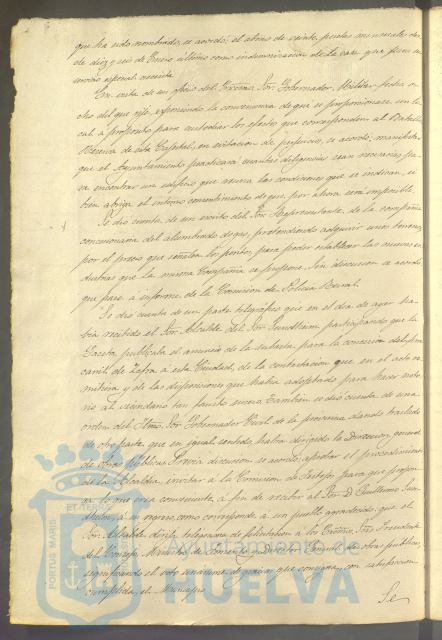 que ha sido nombrado, se acordó, el abono de veinte pesetas mensuales des-
de diez y seis de Enero último como indemnización de la casa que para su
servicio especial necesita.
En vista de un oficio del Excmo. Sor. Gobernador Militar fecha
ocho del que rije, exponiendo la conveniencia de que se proporcionase un lo-
cal á propósito para custodiar los efectos que corresponden al Batallon
Reserva de esta Capital, en evitacion de perjuicio, se acordó, manifestar
que el Ayuntamiento practicará cuantas diligencias sean necesarias pa-
ra encontrar un edificio que reuna las condiciones que se indican, si
bien abriga el íntimo convencimiento de que por ahora será imposible.
Se dió cuenta de un escrito del Sor. Representante de la compañia
concesionaria del alumbrado de gas, pretendiendo adquirir unos terrenos
por el precio que señalen los peritos, para poder establecer las nuevas in-
dustrias que la misma Compañia se propone. Sin discusion se acordó
que pase á informe de la Comision de Policia Rural.
Se dió cuenta de un parte telegráfico que en el dia de ayer ha-
bia recibido el Sor. Alcalde del Sor. Sundheim participando que la
Gaceta publicaba el anuncio de la subasta para la concesion del ferro
carril de Zafra á esta Ciudad, de la contestacion que en el acto re-
mitiera y de las disposiciones que habia adoptado para hacer noto-
rio al vecindario tan fausto suceso. Tambien se dió cuenta de una
orden del Iltmo. Sor. Gobernador Civil de la provincia dando traslado
de otro parte que en igual sentido habia dirigido la Direccion general
de Obras Públicas. Prévia discusion se acordó: aprobar el procedimiento
de la Alcaldia, invitar á la Comision de Festejos para que propon-
ga lo que crea conveniente á fin de recibir al Sor. D. Guillermo Sun-
dheim, á su regreso, como corresponde á un pueblo agradecido, que el
Sor. Alcalde dirija telegrama de felicitacion á los Excmos. Sres. Presidente
del Consejo, Ministro de Fomento y Director General de Obras publicas,
significando el voto unánime de gracias que consigna, con satisfaccion
cumplida, el Municipio.
Se
PORTUS MARIS
ET TERRÆ
Ayuntamiento de
HUELVA